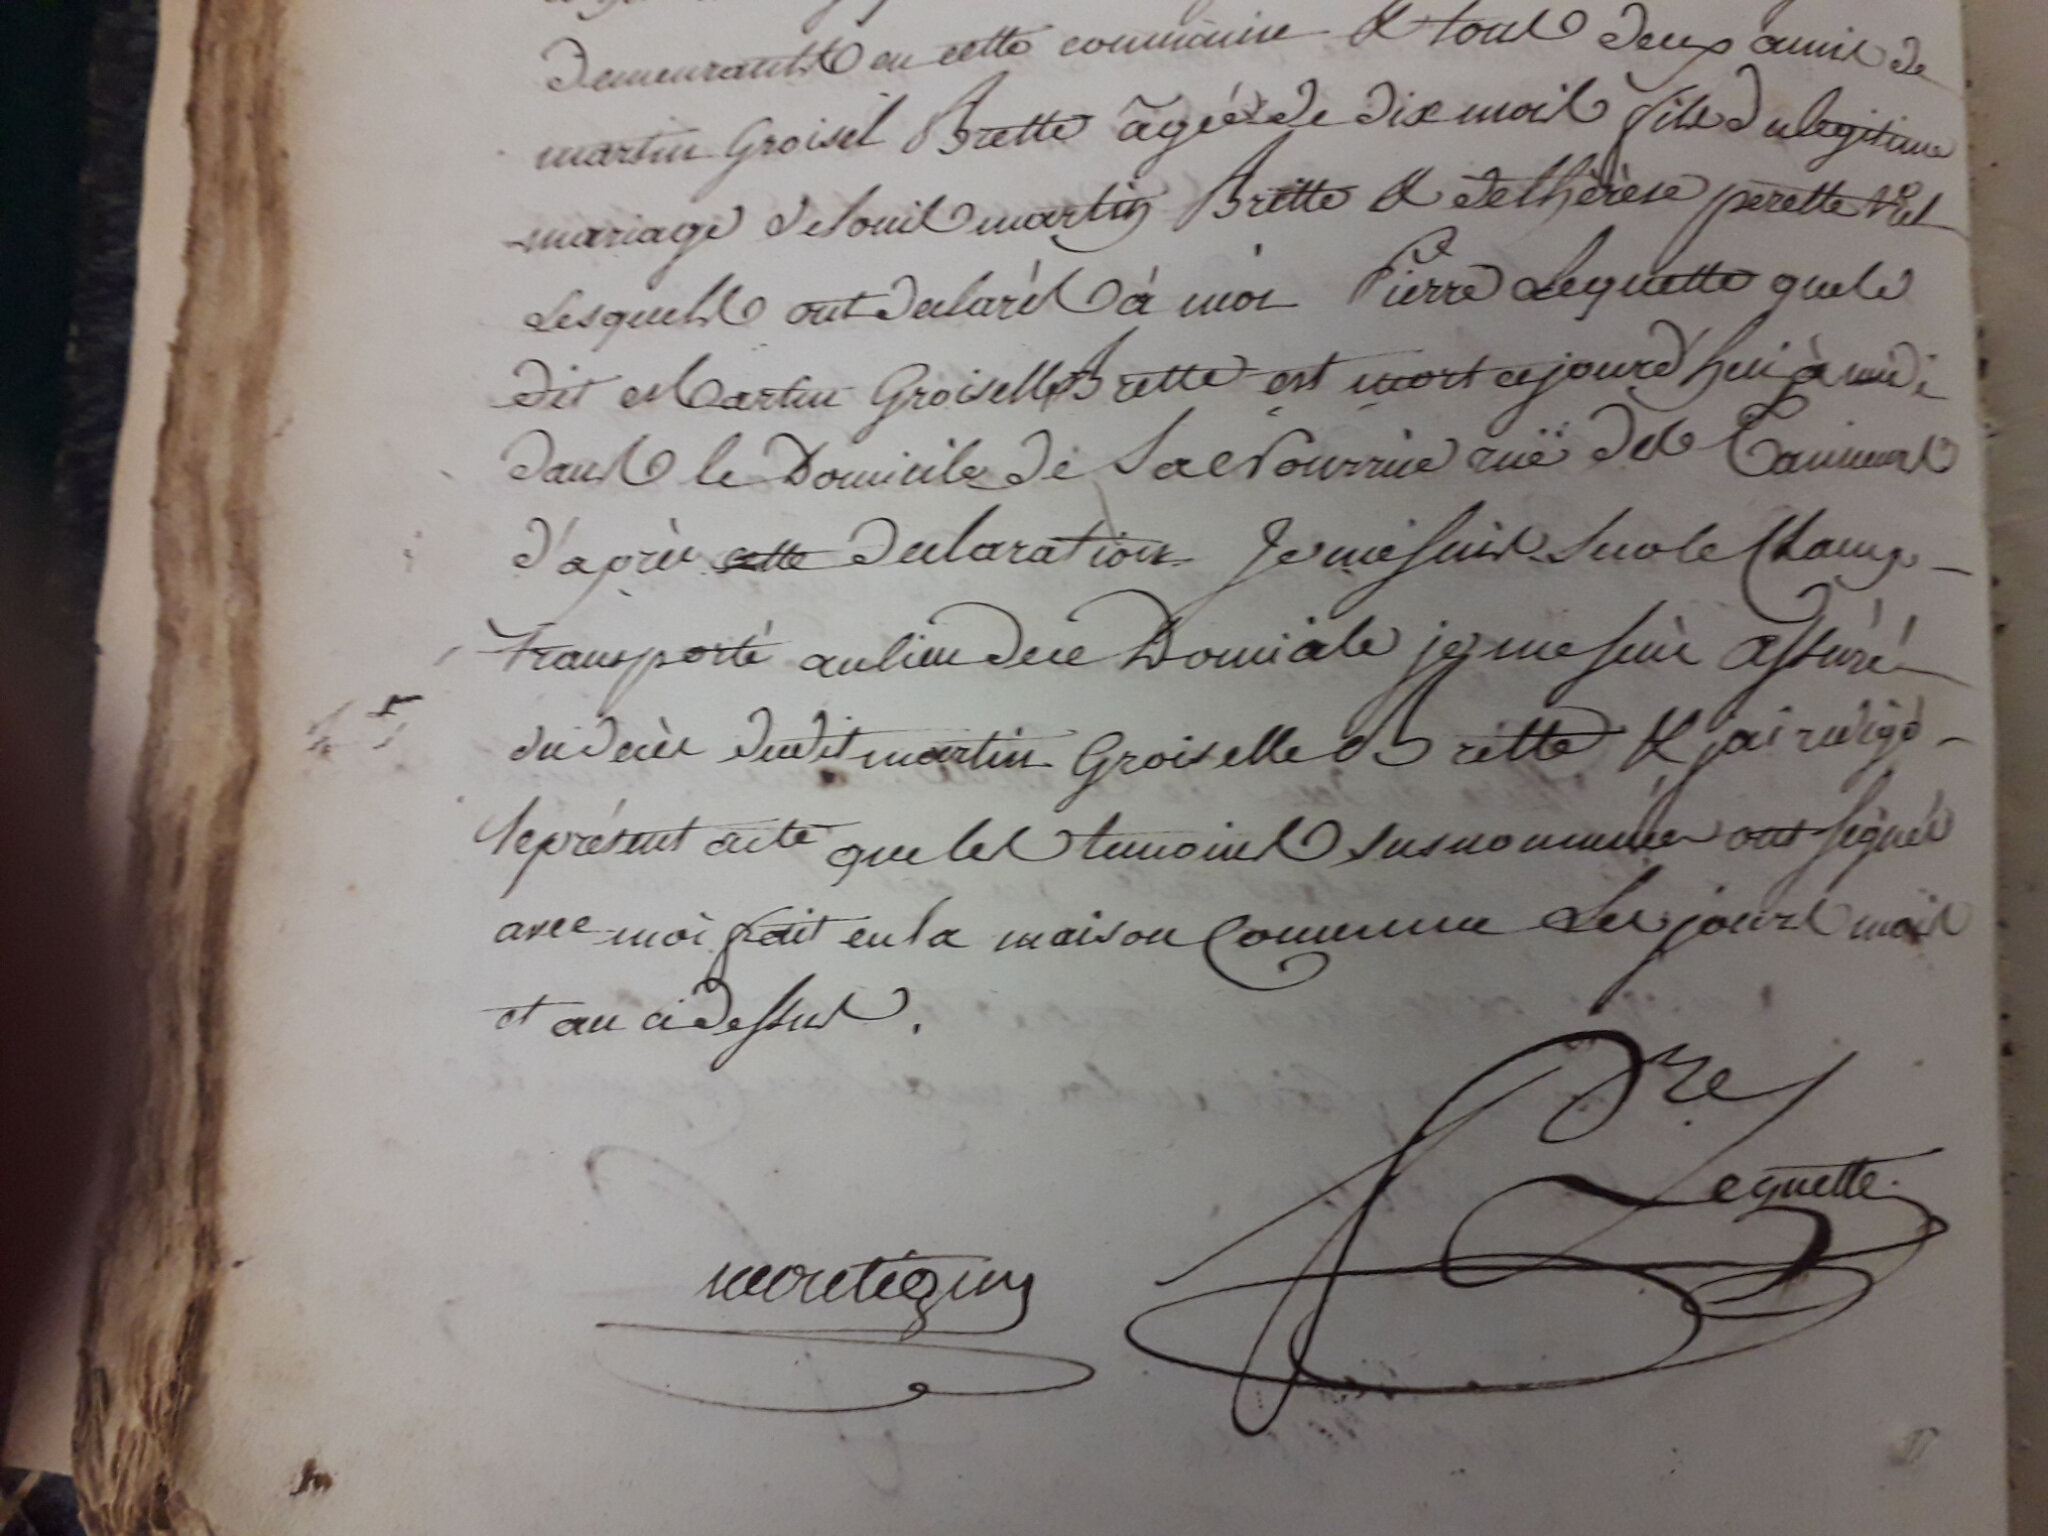 demeurants en cette commune & tous deux amis de
martin Groisel Brette âgé de dix mois fils du legitime
mariage de louis martin Brette & de thérèse perette
Lesquels ont declarés à moi Pierre Lequette que le
dit Martin Groiselle Brette est mort cejourd'hui à midi
dans le Domicile de Sa Nourrice rue des Tanneurs
d'après cette declaration Je me suis Sur le Champ
transporté au lieu de ce Domicile je me suis assuré
du décès dudit martin Groiselle Brette & j'ai redigé
le présent acte que les temoins susnommés ont signés
avec moi fait en la maison Commune Les jours mois
et an ci dessus.
Pre
Lequette